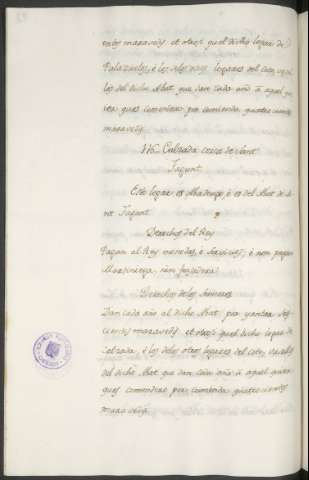 entos maravedis. et otrosi quel dicho logar de
Palazuelos, é los otros logares del coto, vasa-
llos del dicho Abat que dan cada año á aquel qu
ien ques comendero por comienda quatro cientos
maravedis.
Calzada cerca de Sant
Fagunt.
Este logar es Abadengo, é es del Abat de S
ant Fagunt.
Derechos del Rey
Pagan al Rey monedas, é servicios, é non pagan
Martiniega, nin fonsadera.
Derechos de los Señores
Dan cada año al dicho Abat por yantar
cientos maravedis. et otrosi quel dicho logar de
Calzada, é los otros logares del coto, vasallos
del dicho Abat que dan cada año á aquel quien
ques comendero por comienda quatro cientos
maravedis.